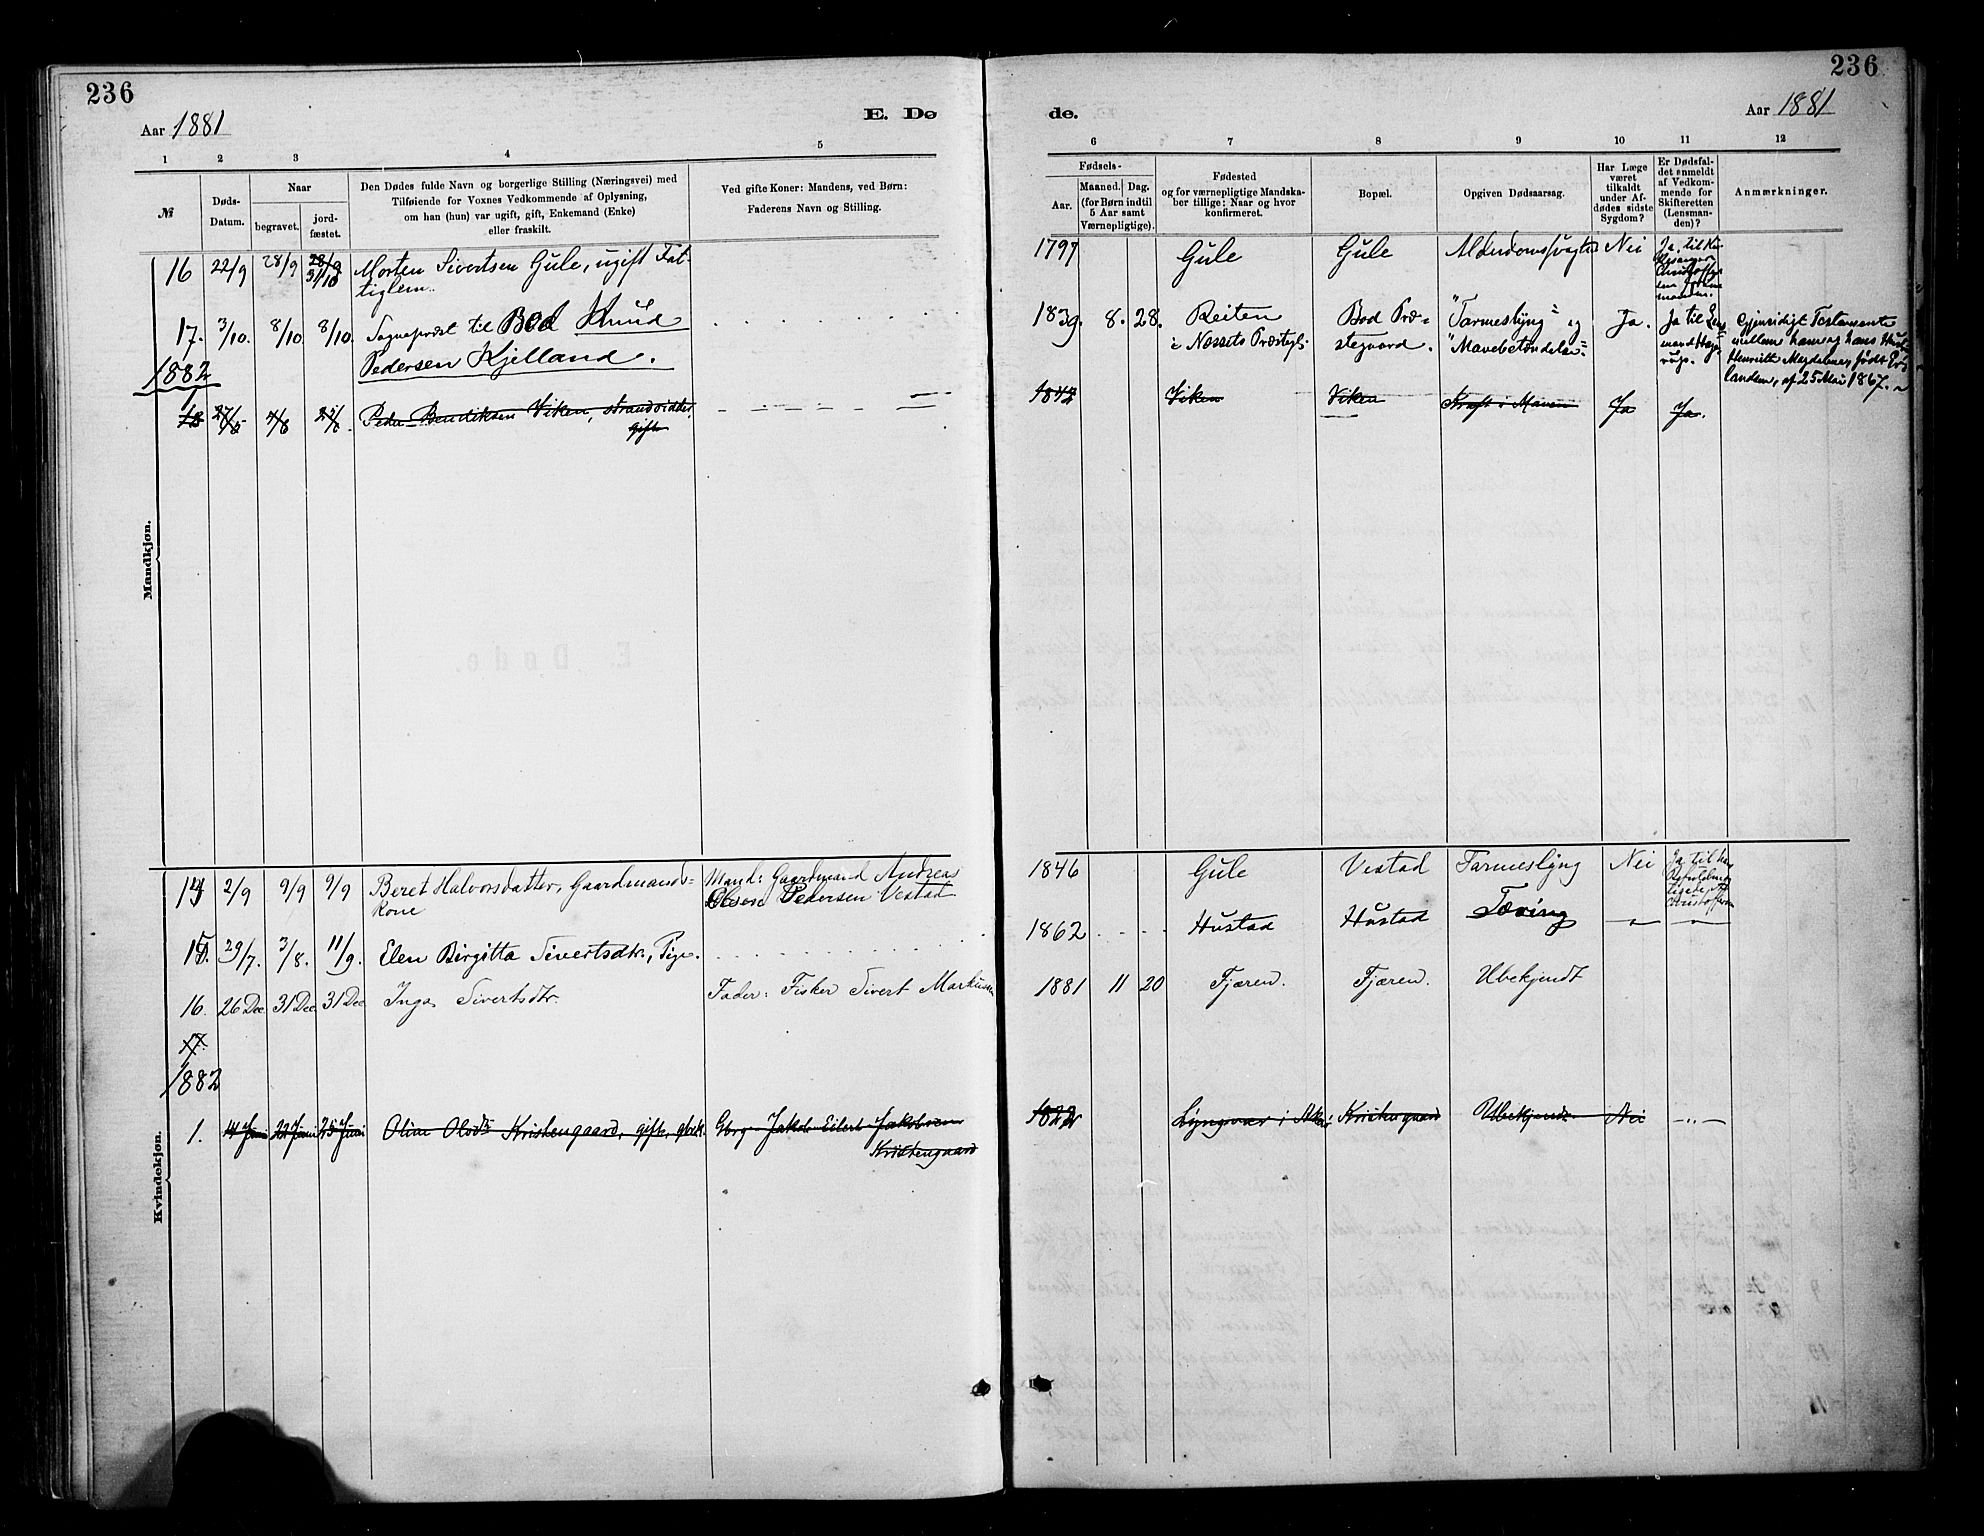 236
236
Aar 1881
E. Dø
de.
Aar 1881
1 2 3 4 5
6 7 8 9 10 11 12
№
Døds-
Datum.
Naar
begravet.
jord-
fæstet.
Den Dødes fulde Navn og borgerlige Stilling (Næringsvei) med
Tilføiende for Voxnes Vedkommende af Oplysning,
om han (hun) var ugift, gift, Enkemand (Enke)
eller fraskilt.
Ved gifte Koner: Mandens, ved Børn:
Faderens Navn og Stilling.
Fødsels-
Aar.
Maaned. Dag.
(for Børn indtil
5 Aar samt
Værnepligtige).
Fødested
og for værnepligtige Mandska-
ber tillige: Naar og hvor
konfirmeret.
Bopæl.
Opgiven Dødsaarsag.
Har Læge
været
tilkaldt
under Af-
dødes sidste
Sygdom?
Er Dødsfal-
det anmeldt
af Vedkom-
mende for
Skifteretten
(Lensman-
den)?
Anmærkninger.
Mandkjøn.
16 22/9 28/9 28/9 31/10 Morten Sivertsen Gule, ugift Fat-
tiglem.
1797 Gule Gule Alderdomssvaghed Nei Ja, til
17. 3/10. 8/10 8/10. Sogneprest til Bod Knud
Pedersen Kjelland.
1839. 8. 28. Reiten
i Næssets Præstegj.
Bod Præ-
stegaard.
"Tarmeslyng" og
"Mavebetændelse"
Ja. Ja til Lens-
mand
Gjensidigt Testamente
mellem ham og hans Hustru
Henriette Magdalena, født
af 25 Mai 1867.
1882
18 Peder Bendiksen Viken, strandsidder,
gift
1842 Viken Viken Kræft i Maven Ja Ja.
Kvindekjøn.
14 2/9 9/9 9/9 Beret Halvorsdatter, Gaardmands-
kone
Mand: Gaardmand Andreas
Pedersen Vestad
1846 Gule Vestad Tarmeslyng Nei Ja til
15. 29/7. 3/8. 11/9. Elen Birgitta Sivertsdtr., Pige.
1862 Hustad Hustad Tæring
16. 26 Dec 31 Dec 31 Dec Inga Sivertsdtr.
Fader: Fisker Sivert Markussen
1881 11 20 Fjæren. Fjæren. Ubekjendt
17.
1882
1. 14 Juni 22 Juni 25 Juni Oline Olsdtr Kristengaard, gift,
Jakob Eilert Jakobsen
Kristengaard
1822 Kristengaard Ubekjendt Nei